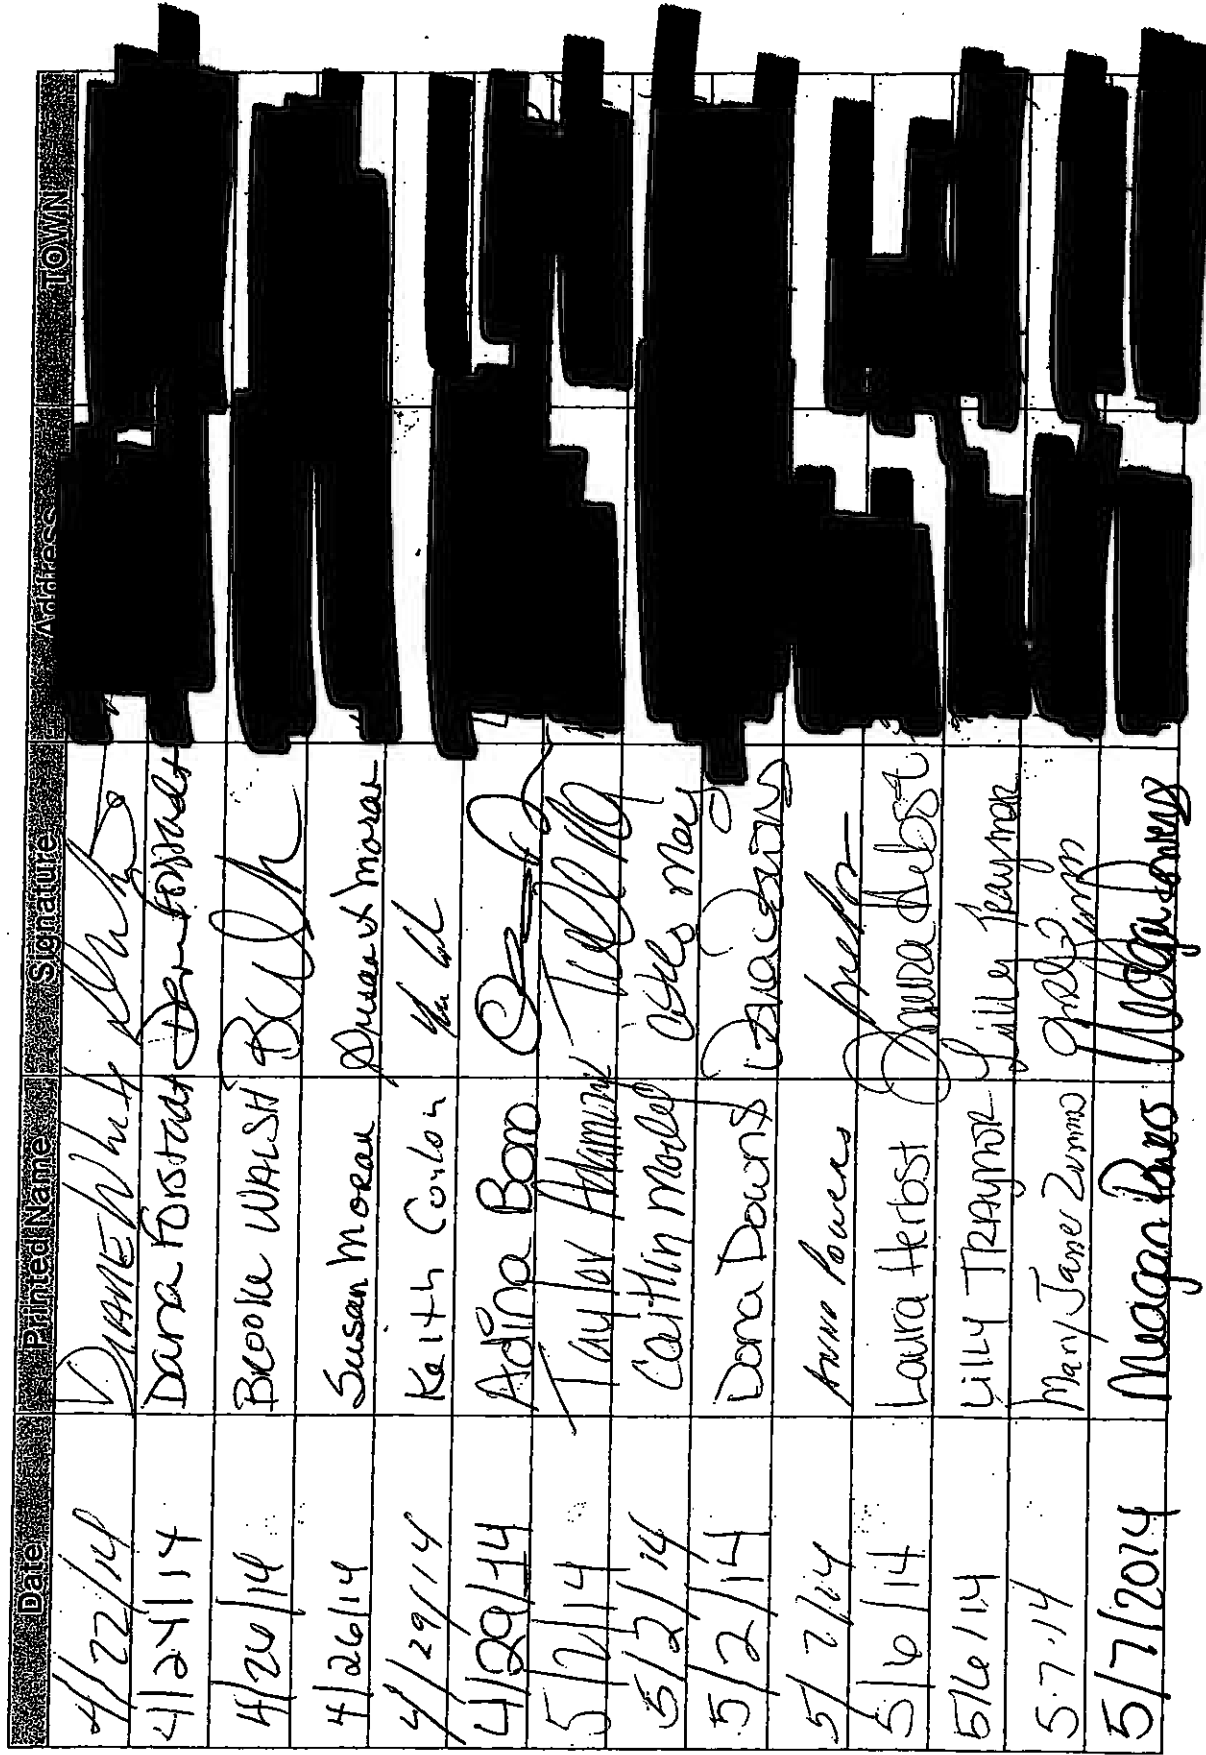 Date Printed Name Signature Address TOWN
4/22/14 DIANE White
4/24/14 Dana Forstadt Dana Forstadt
4/26/14 Brooke WALSH
4/26/14 Susan Moran Susan Moran
4/29/14 Keith Conlon
4/29/14 Adina Boro
5/2/14 Taylor
5/2/14 Caitlin Morley
5/2/14 Dana Downs Dana Downs
5/7/14 ANNE Powers
5/6/14 Laura Herbst Laura Herbst
5/6/14 Lilly TRAYNOR Lilly Traynor
5.7.14 Mary Jane Zummo
5/7/2014 Meagan Powers Meagan Powers